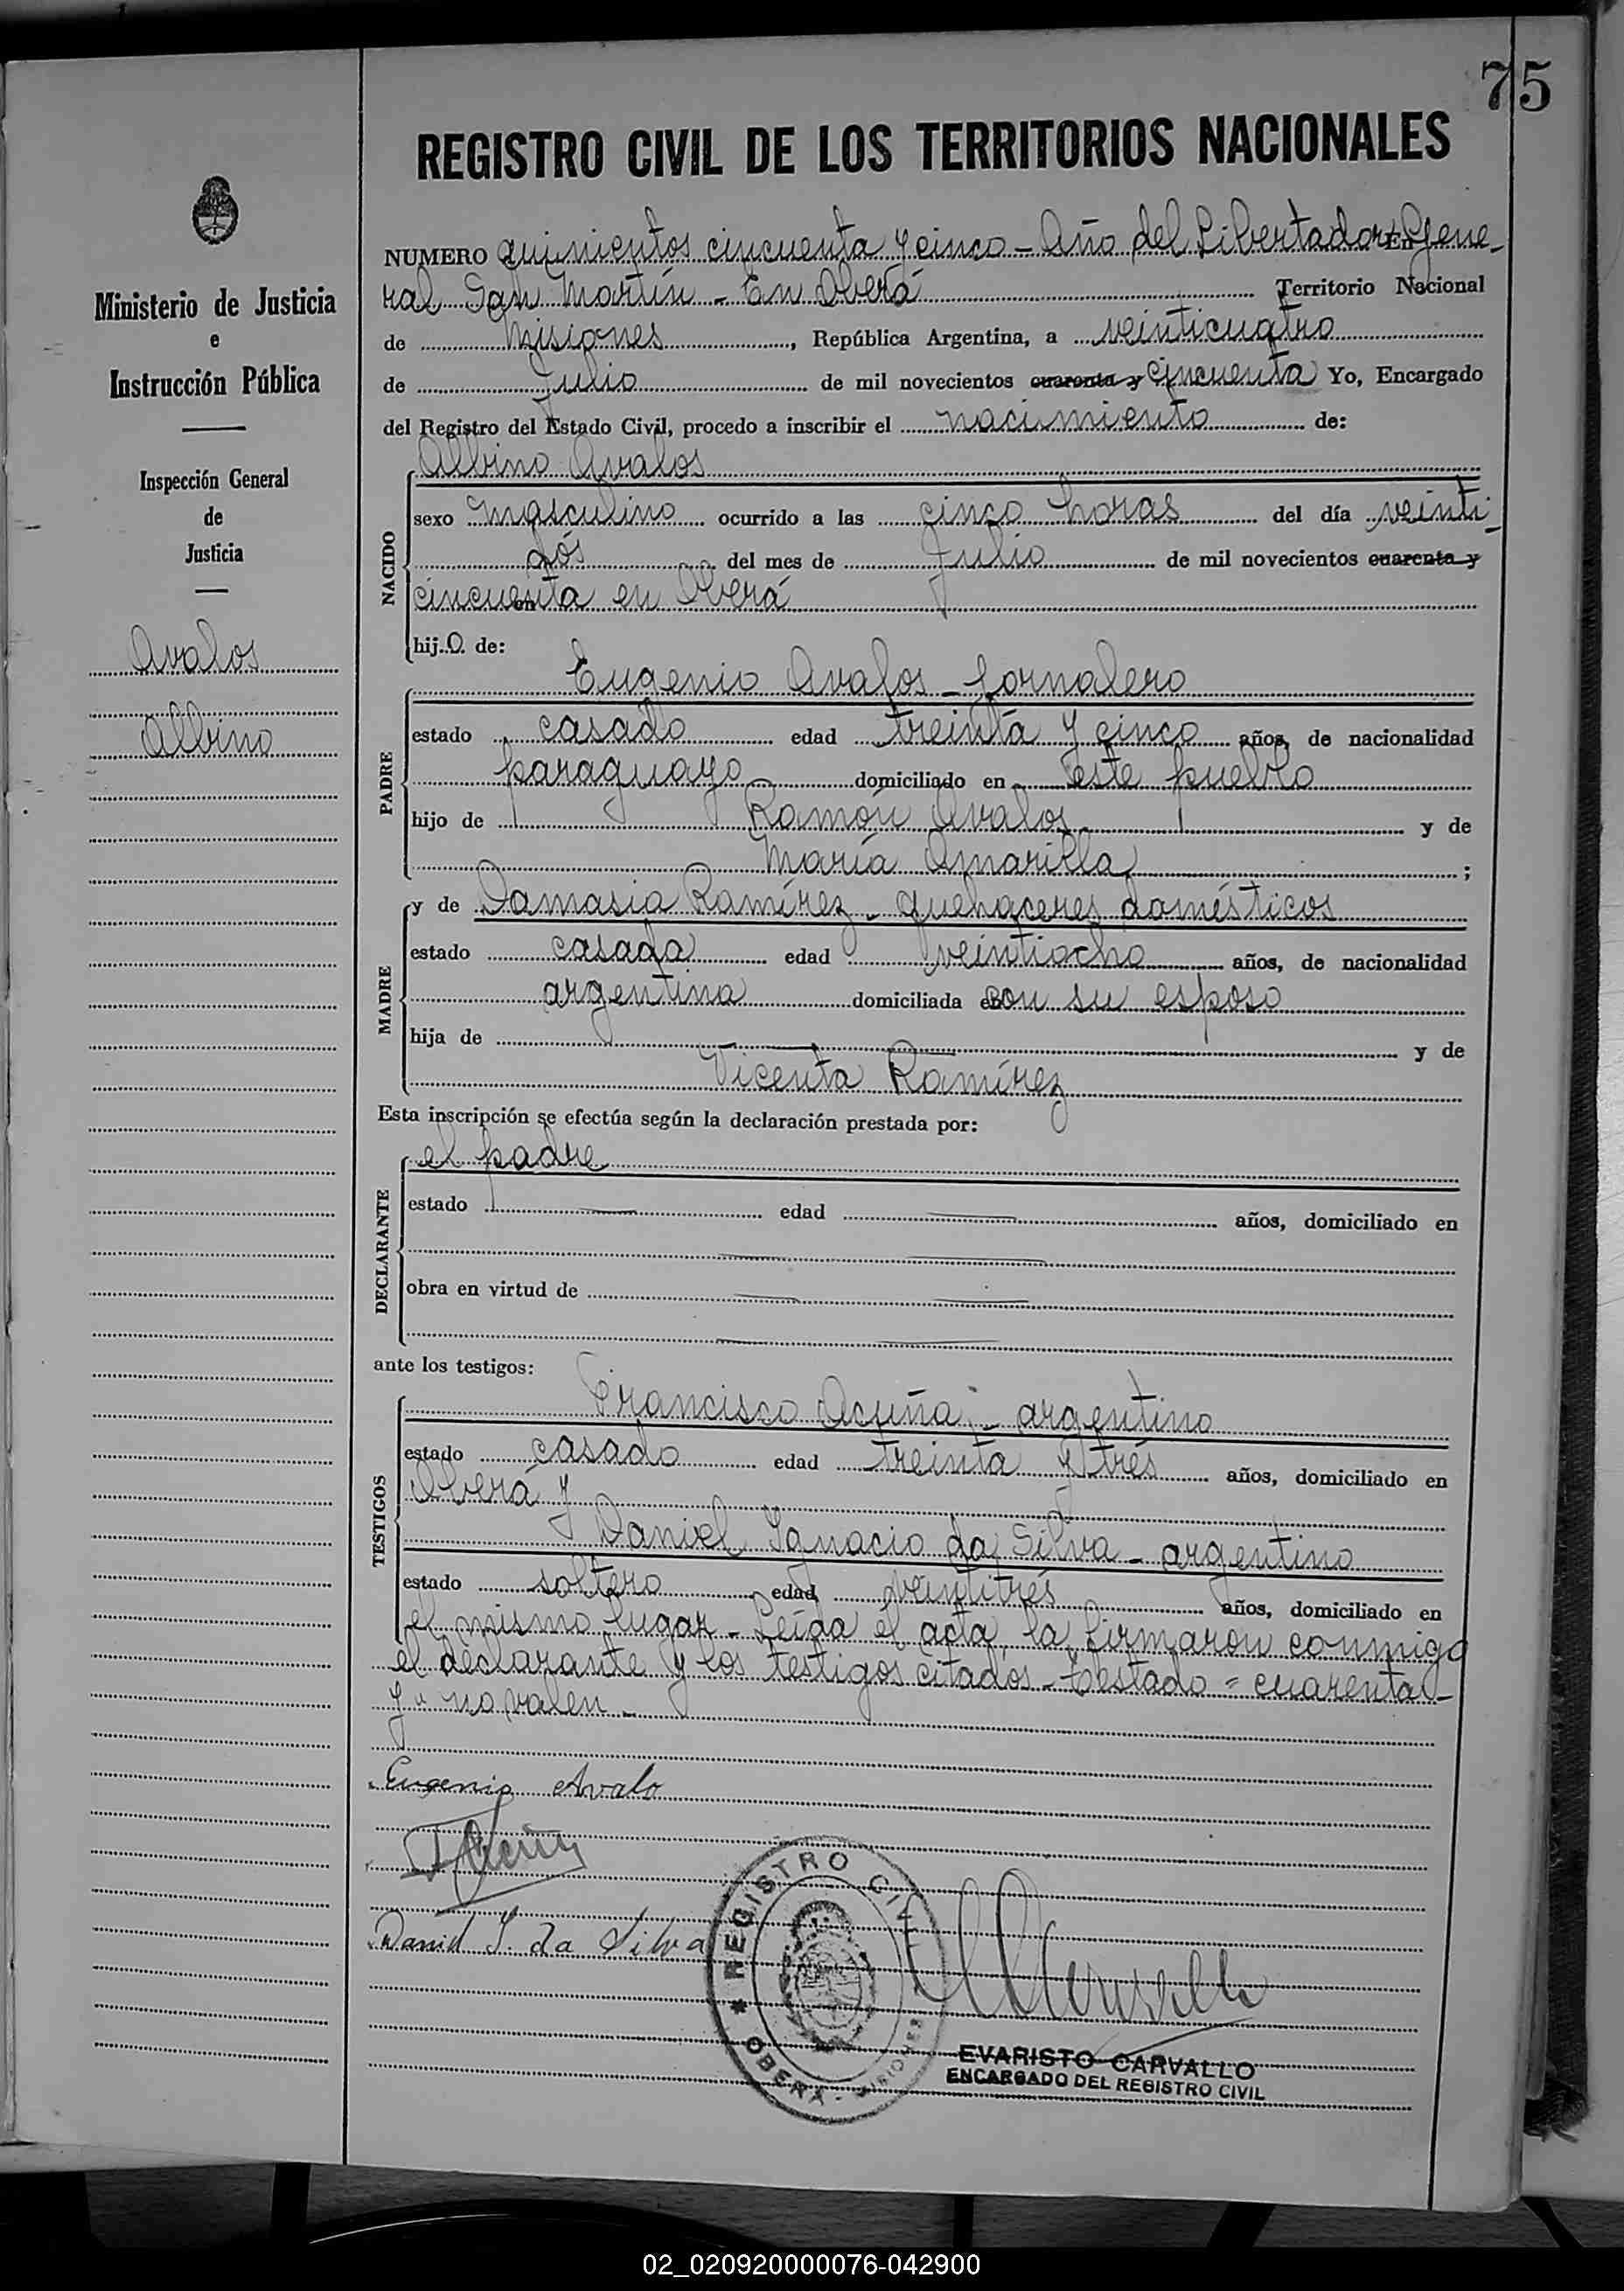 75
REGISTRO CIVIL DE LOS TERRITORIOS NACIONALES
Ministerio de Justicia
e
Instrucción Pública
Inspección General
de
Justicia
Avalos
Albino
NUMERO quinientos cincuenta y cinco - Año del Libertador En Gene-
ral San Martín - En Oberá Territorio Nacional
de Misiones, República Argentina, a veinticuatro
de Julio de mil novecientos cuarenta y cincuenta Yo, Encargado
del Registro del Estado Civil, procedo a inscribir el nacimiento de:
NACIDO
Albino Avalos
sexo masculino ocurrido a las cinco horas del día veinti-
dós del mes de Julio de mil novecientos cuarenta y
cincuenta en Oberá
hijo de:
PADRE
Eugenio Avalos - Jornalero
estado casado edad treinta y cinco años, de nacionalidad
paraguayo domiciliado en este pueblo
hijo de Ramón Avalos y de
María Amarilla ;
MADRE
y de Damasia Ramírez - quehaceres domésticos
estado casada edad veintiocho años, de nacionalidad
argentina domiciliada en con su esposo
hija de y de
Vicenta Ramírez
Esta inscripción se efectúa según la declaración prestada por:
DECLARANTE
el padre
estado edad años, domiciliado en
obra en virtud de
ante los testigos:
TESTIGOS
Francisco Acuña - argentino
estado casado edad treinta y trés años, domiciliado en
Oberá y
Daniel Ignacio da Silva - argentino
estado soltero edad veintitrés años, domiciliado en
el mismo lugar - Leída el acta, la firmaron conmigo
el declarante y los testigos citados - Testado = cuarenta -
y " no valen -
Eugenio Avalo
Daniel I. da Silva
REGISTRO CIVIL
* OBERÁ - MISIONES
EVARISTO CARVALLO
ENCARGADO DEL REGISTRO CIVIL
02_020920000076-042900